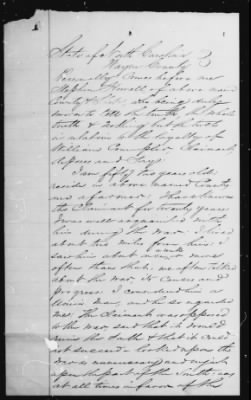 State of North Carolina
Wayne County
Personally Comes before me
Stephen Howell of above named
County & State who being duly
sworn to tell the truth, the whole
truth & nothing but the truth
in relation to the loyalty of
William Crumpler Claimant
deposes and says
I am fifty two years old
reside in above named County
am a farmer. I have known
the Claimant for twenty years
I was well acquainted with
him during the war. I lived
about two miles from him. I
saw him about once a week & some
often than that. We often talked
about the war, its causes and
progress. I claimed to him a
Union man, and he so regarded
me. The Claimant was opposed
to the war, said that it would
ruin the South & that it could
not succeed & looked upon the
war as unnecessary and
upon the part of the South; was
at all times in favor of the